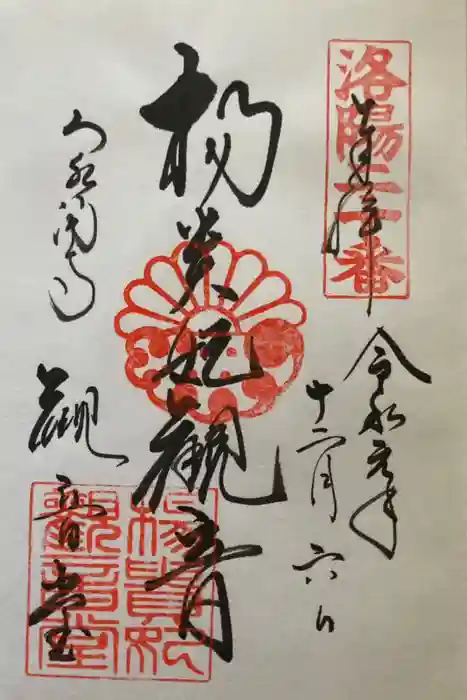 洛陽二十番
奉拝
令和元年
十二月六日
楊貴妃観音
泉涌寺
観音堂
楊貴妃観音堂